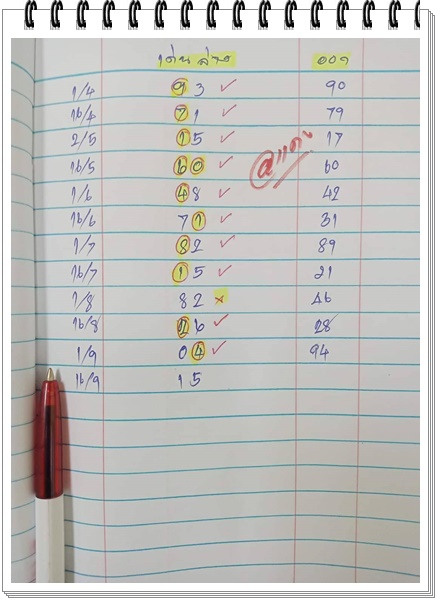 เด่นล่าง ออก
1/4 93 ✓ 90
16/4 71 ✓ 79
2/5 15 ✓ 17
16/5 60 ✓ 60
@แดน
1/6 48 ✓ 42
16/6 71 ✓ 31
1/7 82 ✓ 89
16/7 15 ✓ 21
1/8 82 × 46
16/8 26 ✓ 28
1/9 04 ✓ 94
16/9 15